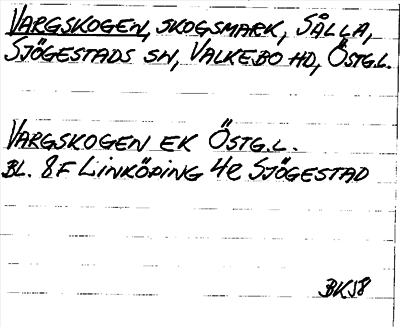 VARGSKOGEN, SKOGSMARK, SÅLLA,
SJÖGESTADS SN, VALKEBO HD, ÖSTG.L.
VARGSKOGEN EK ÖSTG.L.
BL. 8F LINKÖPING 4e SJÖGESTAD
BK58